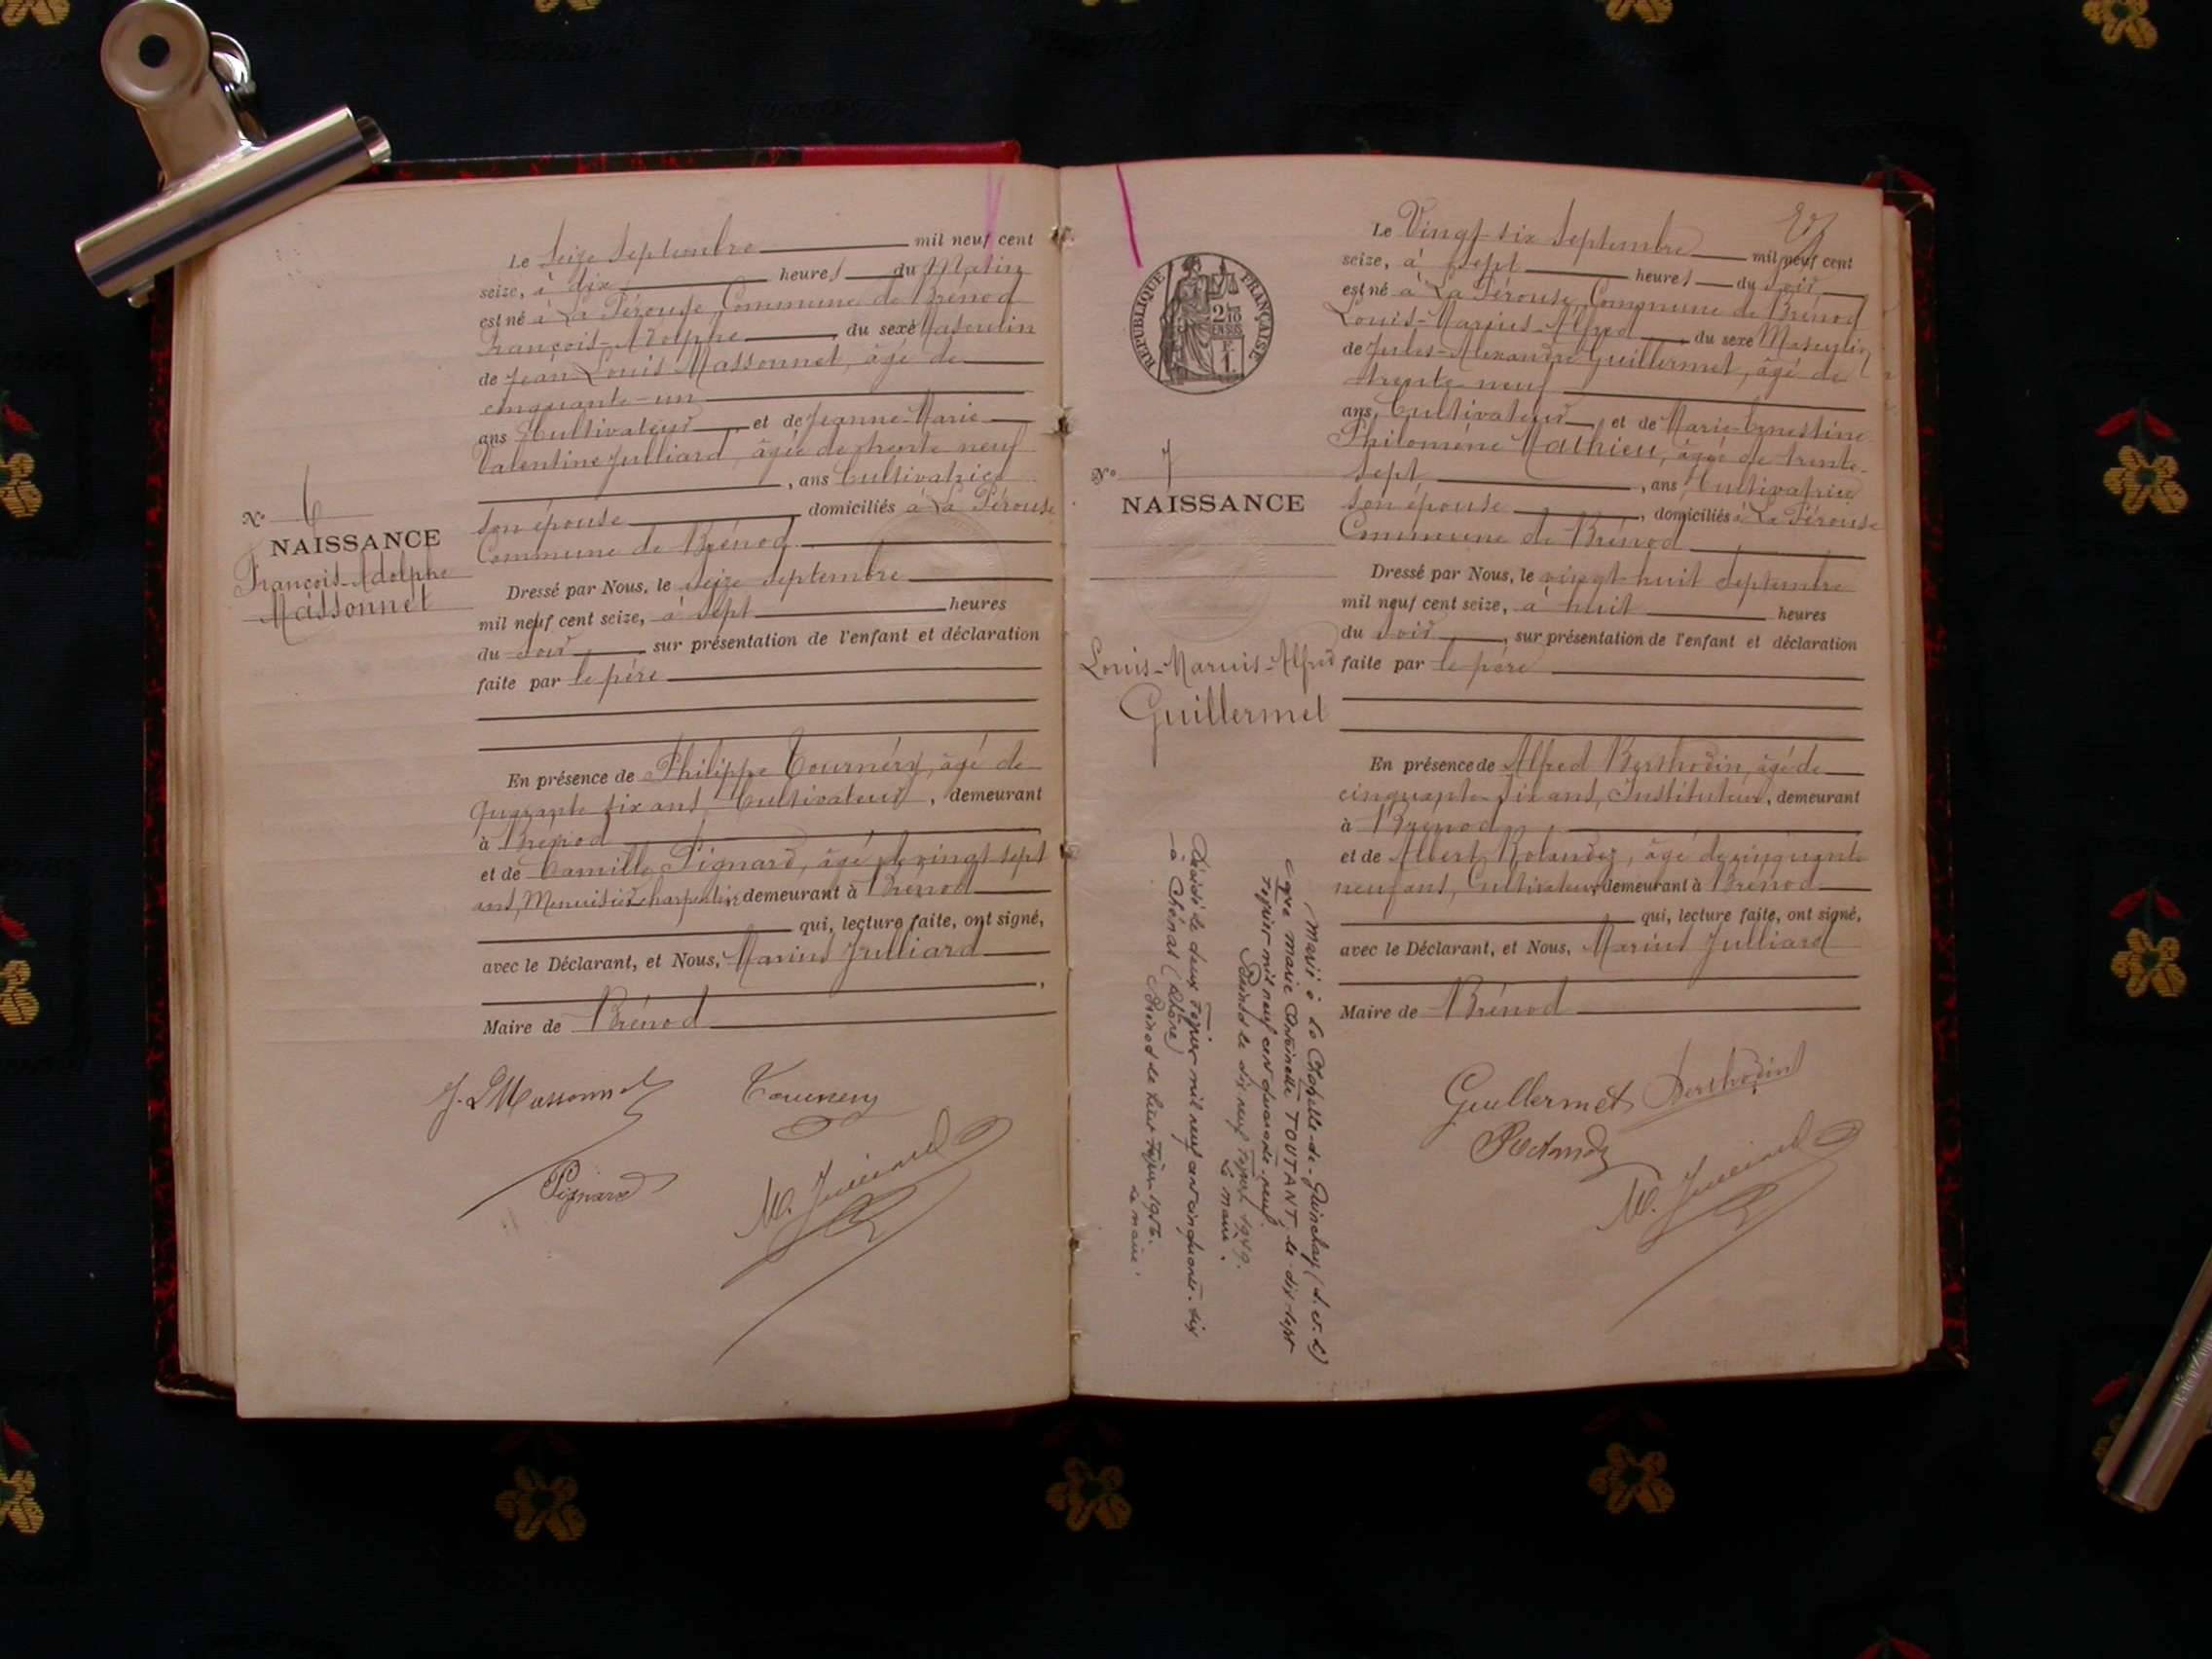 Le Seize Septembre mil neuf cent
seize, à dix heures du Matin
est né à La Pérouse, Commune de Brénod
François-Adolphe, du sexe Masculin
de Jean Louis Massonnet, âgé de
cinquante-un
ans Cultivateur, et de Jeanne-Marie
Valentine Julliard, âgée de trente neuf
, ans Cultivatrice
son épouse domiciliés à La Pérouse
Commune de Brénod
Dressé par Nous, le seize septembre
mil neuf cent seize, à sept heures
du soir sur présentation de l'enfant et déclaration
faite par le père
En présence de Philippe Tournéry, âgé de
quarante six ans, Cultivateur, demeurant
à Brénod
et de Camille Pignard, âgé de vingt sept
ans, Menuisier charpentier demeurant à Brénod
qui, lecture faite, ont signé,
avec le Déclarant, et Nous, Marius Julliard
Maire de Brénod
N° 6
NAISSANCE
François-Adolphe
Massonnet
J. L Massonnet
Tournery
Pignard
M. Julliard
REPUBLIQUE FRANÇAISE
2/10
EN SUS
N° 7
NAISSANCE
Louis-Marius-Alfred
Guillermet
Le Vingt-six Septembre mil neuf cent
seize, à sept heures du soir
est né à La Pérouse, Commune de Brénod
Louis-Marius-Alfred du sexe Masculin
de Jules-Alexandre Guillermet, âgé de
trente-neuf
ans, Cultivateur, et de Marie-Ernestine
Philomène Mathieu, âgée de trente-
sept, ans Cultivatrice
son épouse, domiciliés à La Pérouse
Commune de Brénod
Dressé par Nous, le vingt-huit Septembre
mil neuf cent seize, à huit heures
du soir, sur présentation de l'enfant et déclaration
faite par le père
En présence de Alfred Berthodin, âgé de
cinquante-six ans, Instituteur, demeurant
à Brénod
et de Albert Rolandez, âgé de cinquante
neuf ans, Cultivateur demeurant à Brénod
qui, lecture faite, ont signé,
avec le Déclarant, et Nous, Marius Julliard
Maire de Brénod
Guillermet Berthodin
M. Julliard
Marié à La Chapelle-de-Guinchay (S. et. L)
avec Marie Antoinette TOUTANT, le dix-sept
Février mil neuf cent quarante-neuf
Brénod le dix neuf Février 1949.
Le maire.
Décédé le deux Février mil neuf cent cinquante-six
à Chénas (Rhône)
Brénod le huit Février 1956.
Le maire.